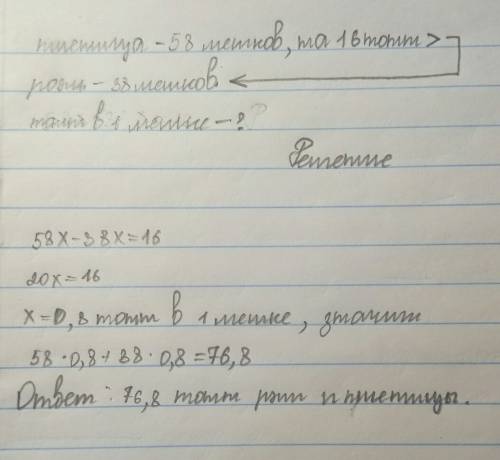 пшеница - 58 мешков, на 16 тонн >
рожь - 38 мешков
тонн в 1 мешке - ?
Решение
58x-38x=16
20x=16
x=0,8 тонн в 1 мешке, значит
58·0,8+38·0,8=76,8
Ответ: 76,8 тонн ржи и пшеницы.